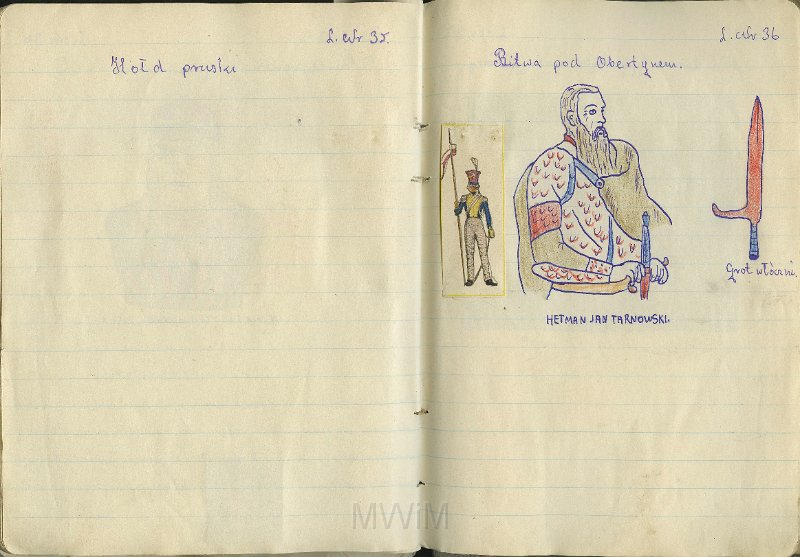 L. cw 35.
Hołd pruski
L. cw 36
Bitwa pod Obertynem.
Grot włóczni.
HETMAN JAN TARNOWSKI.
MWiM